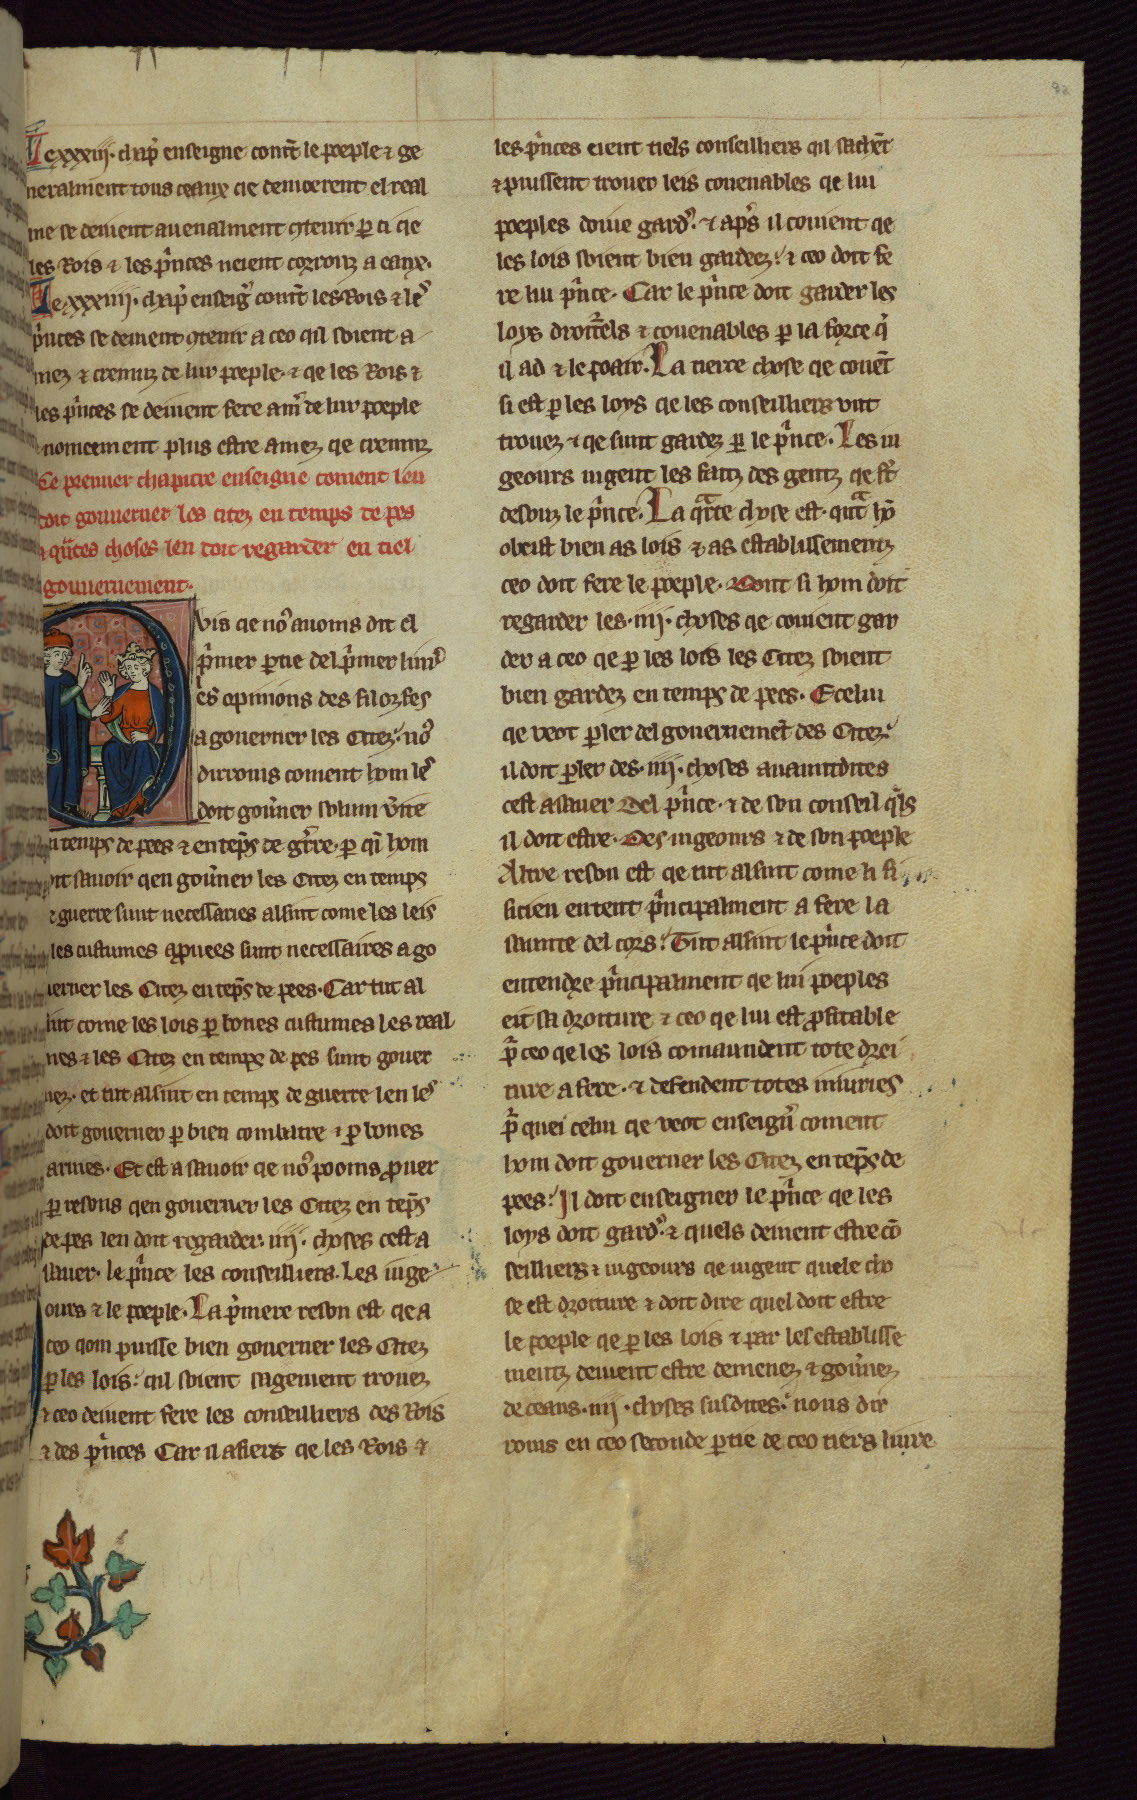 Le xxxiij. chap̄ enseigne comēt le poeple ⁊ ge
neralment tous ceaux qe demoerent el real
me se deiuent auenalment ꝯtenir ꝑ ci qe
les Rois ⁊ les p̃nces neient corrouz a eaux.
Le xxxiiij. chap̄ enseigẽ comēt les Rois ⁊ les
p̃nces se deiuent ꝯtenir a ceo qil soient a
mez ⁊ cremuz de lur poeple. ⁊ qe les Rois ⁊
les p̃nces se deiuent fere amer de lur poeple
nomeement plus estre amez qe cremuz
Le premer chapitre enseigne coment len
doit gouuerner les citez en temps de pes
⁊ qãtes choses len doit regarder en tiel
gouuernement.
Puis qe noꝰ auoms dit el
p̃mer ꝑtie del p̃mer liure
les opinions des filozfes
a gouerner les Citez. noꝰ
dirroms coment hom les
doit goũner solum v̄ite
en temps de pees ⁊ en tep̄s de gr̃re. ꝑ qi hom
doit sauoir qen goũner les Citez en temps
de guerre sunt necessaries alsint come les leis
⁊ les custumes apꝛuees sunt necessaires a go
uerner les Citez en tep̄s de pees. Car tut al
sint come les lois ꝑ bones custumes les real
mes ⁊ les Citez en temps de pes sunt gouer
nez. et tut alsint en temps de guerre len les
doit gouerner ꝑ bien combatre ⁊ ꝑ bones
armes. Et est a sauoir qe noꝰ pooms ꝓuer
ꝑ resons qen gouerner les Citez en tep̄s
de pes len doit regarder. iiij. choses cest a
sauer. le p̃nce les conseilliers. Les iuge
ours ⁊ le poeple. La p̃mere reson est qe a
ceo qom puisse bien gouerner les Citez
ꝑ les lois. qil soient sagement trouez
⁊ ceo deiuent fere les conseilliers des Rois
⁊ des p̃nces Car il afiert qe les Rois ⁊
les p̃nces eient tiels conseilliers qil sachēt
⁊ puissent trouer leis couenables qe lui
poeples doiue gardꝰ. ⁊ ap̄s il couient qe
les lois soient bien gardeez. ⁊ ceo doit fe
re lui p̃nce. Car le p̃nce doit garder les
loys droit̃els ⁊ couenables ꝑ la force q̃
il ad ⁊ le poair. La tierce chose qe couēt
si est ꝑ les loys qe les conseilliers unt
trouez ⁊ qe sunt gardez ꝑ le p̃nce. Les iu
geours iugent les faitz des gentz qe sūt
desouz le p̃nce. La qᵃrte chose est. qᵃnt hō
obeist bien as lois ⁊ as establissementz
ceo doit fere le poeple. Dont si hom doit
regarder les. iiij. choses qe couient gar
der a ceo qe ꝑ les lois les Citez soient
bien gardez en temps de pees. E celui
qe veot ꝑler del gouernemēt des Citez.
il doit ꝑler des. iiij. choses auauntdites
cest a sauer Del p̃nce. ⁊ de son conseil q̃ls
il doit estre. Des iugeours ⁊ de son poeple
Altre reson est qe tut alsint come li fi
sicien entent p̃ncipalment a fere la
saunte del cors. Tut alsint le p̃nce doit
entendre p̃ncipalment qe lui poeples
eit sa droiture ⁊ ceo qe lui est ꝓfitable
p̃ ceo qe les lois comaundent tote drei
ture a fere. ⁊ defendent totes iniuries
p̃ quei celui qe veot enseigñ coment
hom doit gouerner les Citez en tep̄s de
pees. Il doit enseigner le p̃nce qe les
loys doit gardꝰ. ⁊ quels deiuent estre cō
seilliers ⁊ iugeours qe iugent quele cho
se est droiture ⁊ doit dire quel doit estre
le poeple qe ꝑ les lois ⁊ par les establisse
mentz deiuent estre demenez ⁊ goũnez
de ceans. iiij. choses susdites. nous dir
roms en ceo seconde ꝑtie de ceo tiers liure